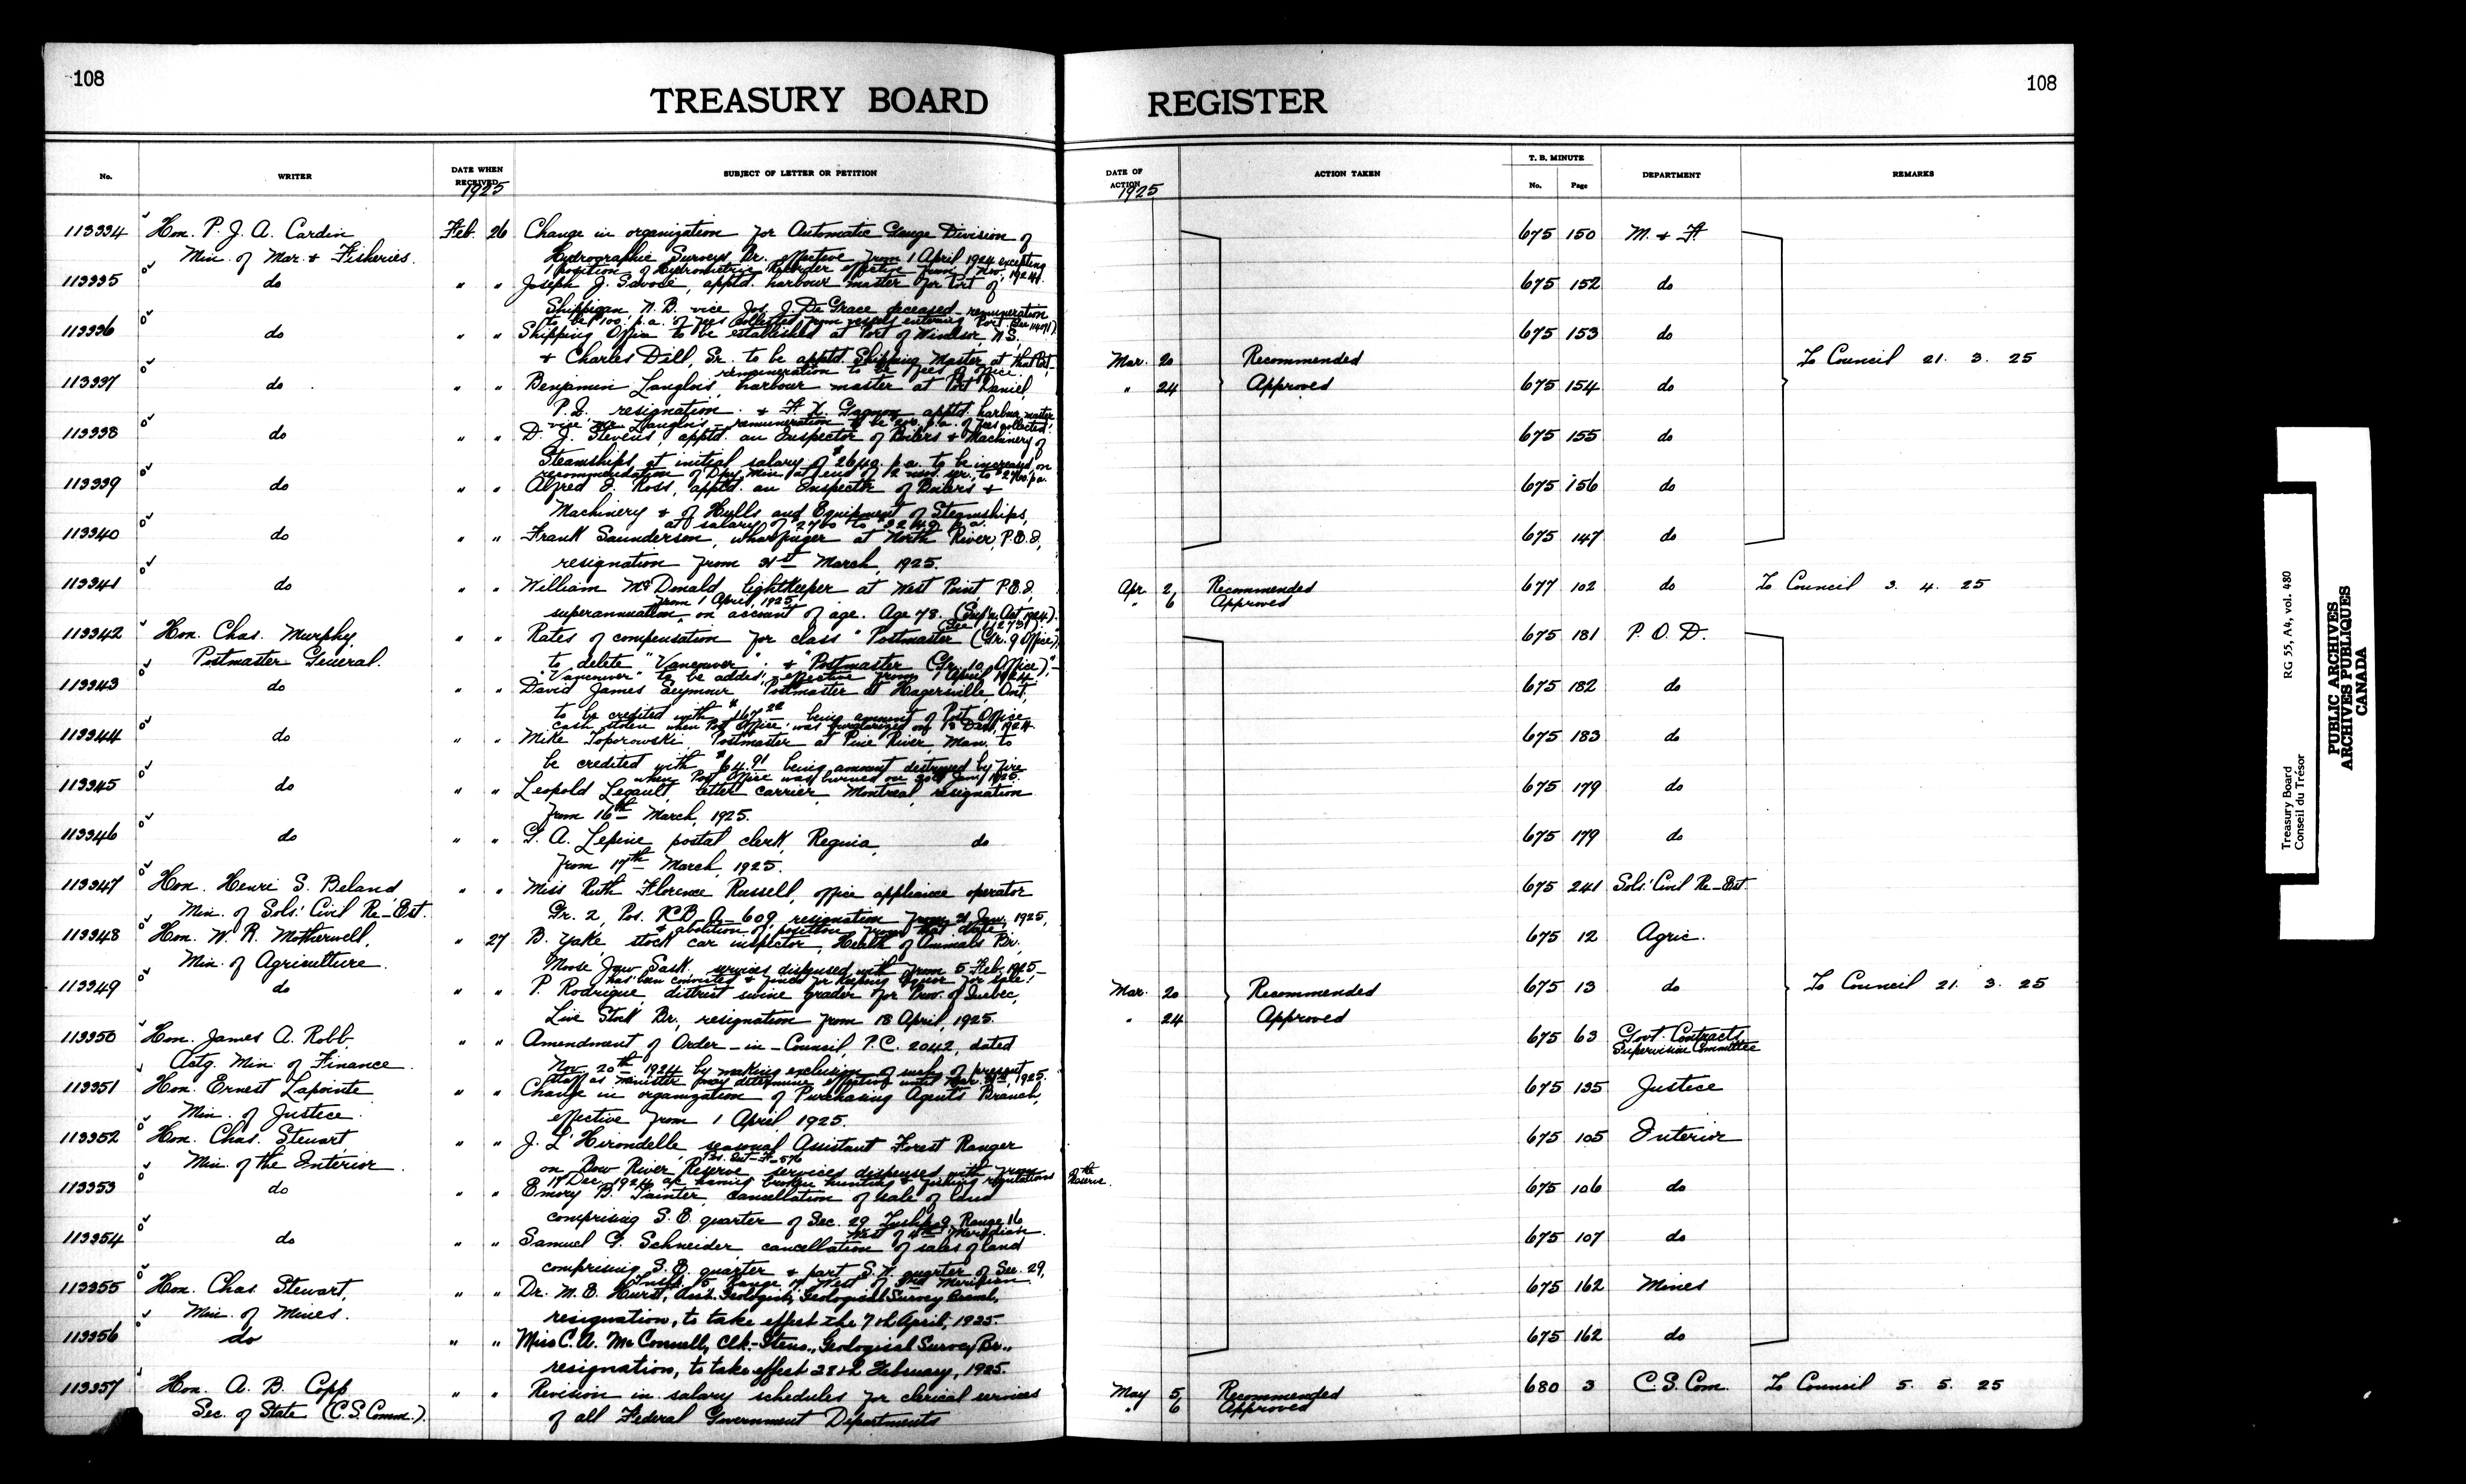 108
TREASURY BOARD REGISTER
108
No. WRITER DATE WHEN RECEIVED SUBJECT OF LETTER OR PETITION DATE OF ACTION ACTION TAKEN T. B. MINUTE No. Page DEPARTMENT REMARKS
1925 1925
113334 Hon. P. J. A. Cardin Feb. 26 Change in organization for Automatic Gauge Division of 675 150 M. & F.
Min. of Mar. & Fisheries. Hydrographic Surveys Br. effective from 1 April 1924 excepting
1 position of Hydrometric Recorder effective from 1 Nov. 1924.
113335 do " " Joseph J. Savoie, apptd. harbour master for Port of 675 152 do
Shippigan N.B. vice Jos. J. De Grace deceased - remuneration
to be $100. p.a. of fees collected from vessels entering Port.
113336 do " " Shipping Office to be established at Port of Windsor, N.S., 675 153 do
& Charles Dill, Sr. to be apptd. Shipping Master at that Port, Mar. 20 Recommended To Council 21. 3. 25
remuneration to be fees of office.
113337 do " " Benjamin Langlois, harbour master at Port Daniel, " 24 Approved 675 154 do
P.Q. resignation & F. X. Gagnon apptd. harbour master
vice Mr. Langlois - remuneration to be $200. p.a. of fees collected.
113338 do " " D. J. Stevens, apptd. an Inspector of Boilers & Machinery of 675 155 do
Steamships at initial salary of $2640. p.a. to be increased, on
recommendation of Dpy. Min. at end of 12 mos. ser., to $2760. p.a.
113339 do " " Alfred E. Ross, apptd. an Inspector of Boilers & 675 156 do
Machinery & of Hulls and Equipment of Steamships,
at salary of $2700 to $3240 p.a.
113340 do " " Frank Saunderson, wharfinger at North River, P.E.I., 675 147 do
resignation from 31st March, 1925.
113341 do " " William McDonald, lightkeeper at West Point, P.E.I., Apr. 2, Recommended 677 102 do To Council 3. 4. 25
from 1 April, 1925
superannuation, on account of age. Age 78. (Sup'n. Act 1924). " 6 Approved
113342 Hon. Chas. Murphy, " " Rates of compensation for class "Postmaster (Gr. 9 Office)," 675 181 P. O. D.
Postmaster General. to delete "Vancouver" & "Postmaster (Gr. 10 Office)" -
"Vancouver" to be added, effective from 1 April 1924.
113343 do " " David James Seymour Postmaster at Hagersville, Ont. 675 182 do
to be credited with $167.22 being amount of Post Office
cash stolen when Post Office was burglarized on 13 Dec. 1924.
113344 do " " Mike Toporowski, Postmaster at Pine River, Man. to 675 183 do
be credited with $64.91 being amount destroyed by fire
when Post Office was burned on 30th Jan. 1925.
113345 do " " Leopold Legault, letter carrier, Montreal, resignation 675 179 do
from 16th March, 1925.
113346 do " " G. A. Lepine, postal clerk, Regina, do 675 179 do
from 17th March, 1925.
113347 Hon. Henri S. Beland " " Miss Ruth Florence Russell, office appliance operator 675 241 Sols.' Civil Re-Est
Min. of Sols.' Civil Re-Est. Gr. 2, Pos. RCB-A-609 resignation from 21 Jan. 1925,
& abolition of position from that date.
113348 Hon. W. R. Motherwell, " 27 B. Yake, stock car inspector, Health of Animals Br. 675 12 Agric.
Min. of Agriculture. Moose Jaw Sask. services dispensed with from 5 Feb. 1925 -
has been convicted & fined for keeping liquor for sale.
113349 do " " P. Rodrigue, district swine grader for Prov. of Quebec, Mar. 20 Recommended 675 13 do To Council 21. 3. 25
Live Stock Br., resignation from 18 April, 1925. " 24 Approved
113350 Hon. James A. Robb, " " Amendment of Order-in-Council, P.C. 2042, dated 675 63 Govt. Contracts Supervision Committee
Actg. Min. of Finance. Nov. 20th 1924 by making exclusion of such of present
staff as Minister may determine effective until Mar. 31st, 1925.
113351 Hon. Ernest Lapointe " " Change in organization of Purchasing Agents Branch, 675 135 Justice
Min. of Justice. effective from 1 April, 1925.
113352 Hon. Chas. Stewart, " " J. L'Hirondelle, seasonal Assistant Forest Ranger 675 105 Interior
Min. of the Interior. Pos. Int-F-576
on Bow River Reserve, services dispensed with from
17 Dec. 1924 a/c having broken hunting & fishing regulations of the Reserve.
113353 do " " Emory B. Painter, cancellation of sale of land 675 106 do
comprising S.E. quarter of Sec. 29 Tnshp. 9 Range 16
West of 4th Meridian.
113354 do " " Samuel G. Schneider, cancellation of sales of land 675 107 do
comprising S.E. quarter & part S.W. quarter of Sec. 29,
Tnshp. 15 Range 17 West of 3rd Meridian.
113355 Hon. Chas. Stewart, " " Dr. M. E. Hurst, Ass't. Geologist, Geological Survey Branch, 675 162 Mines
Min. of Mines. resignation, to take effect the 7th April, 1925.
113356 do " " Miss C. A. McConnell, Clk.-Steno., Geological Survey Br., 675 162 do
resignation, to take effect 28th February, 1925.
113357 Hon. A. B. Copp " " Revision in salary schedules for clerical services May 5, Recommended 680 3 C. S. Com. To Council 5. 5. 25
Sec. of State (C.S. Comm.). of all Federal Government Departments " 6 Approved
Treasury Board RG 55, A4, vol. 480
Conseil du Trésor
PUBLIC ARCHIVES
ARCHIVES PUBLIQUES
CANADA